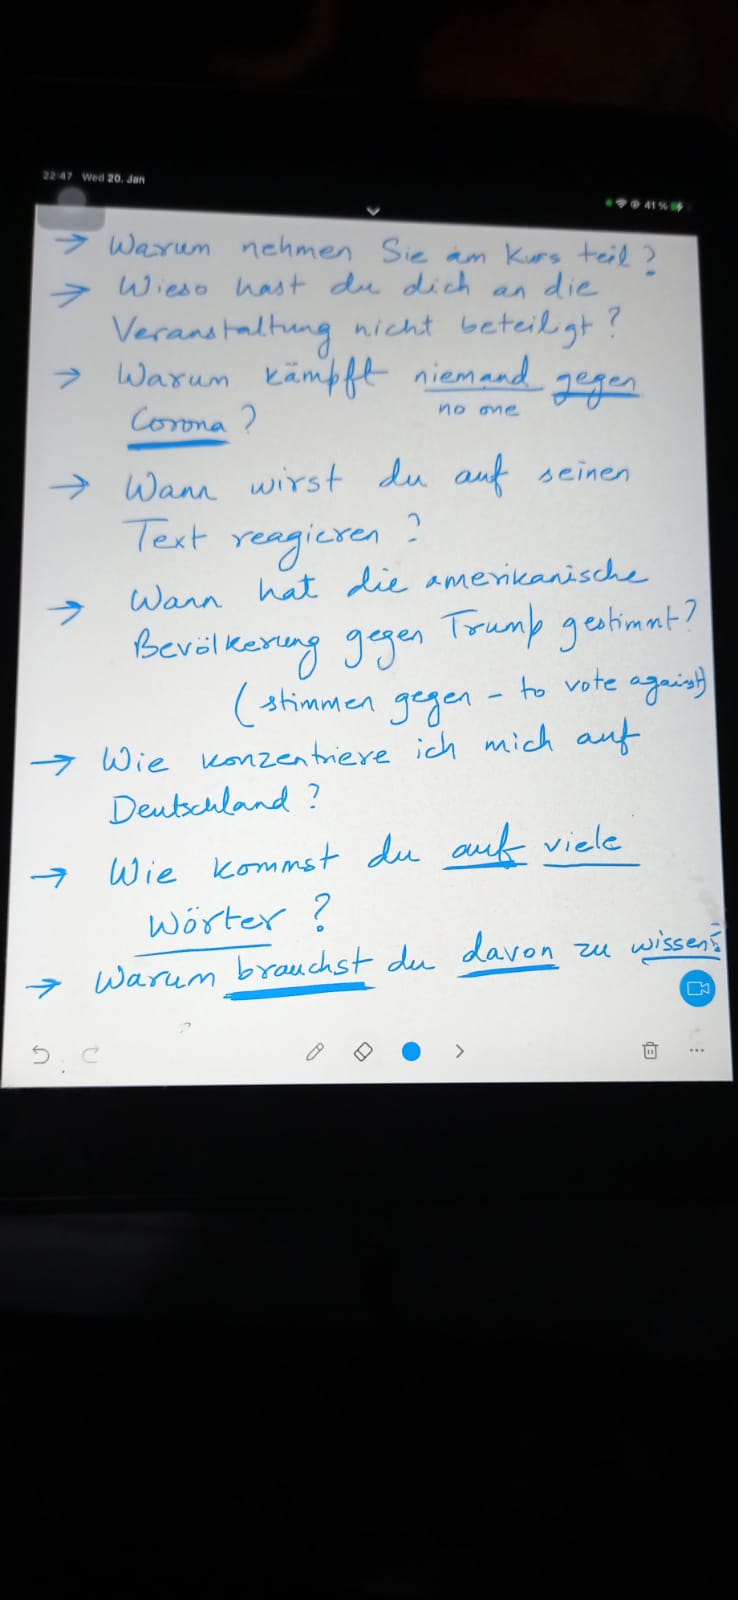 22:47 Wed 20. Jan
41%
→ Warum nehmen Sie am Kurs teil?
→ Wieso hast du dich an die
Veranstaltung nicht beteiligt?
→ Warum kämpft niemand gegen
no one
Corona?
→ Wann wirst du auf seinen
Text reagieren?
→ Wann hat die amerikanische
Bevölkerung gegen Trump gestimmt?
(stimmen gegen - to vote against)
→ Wie konzentriere ich mich auf
Deutschland?
→ Wie kommst du auf viele
Wörter?
→ Warum brauchst du davon zu wissen?